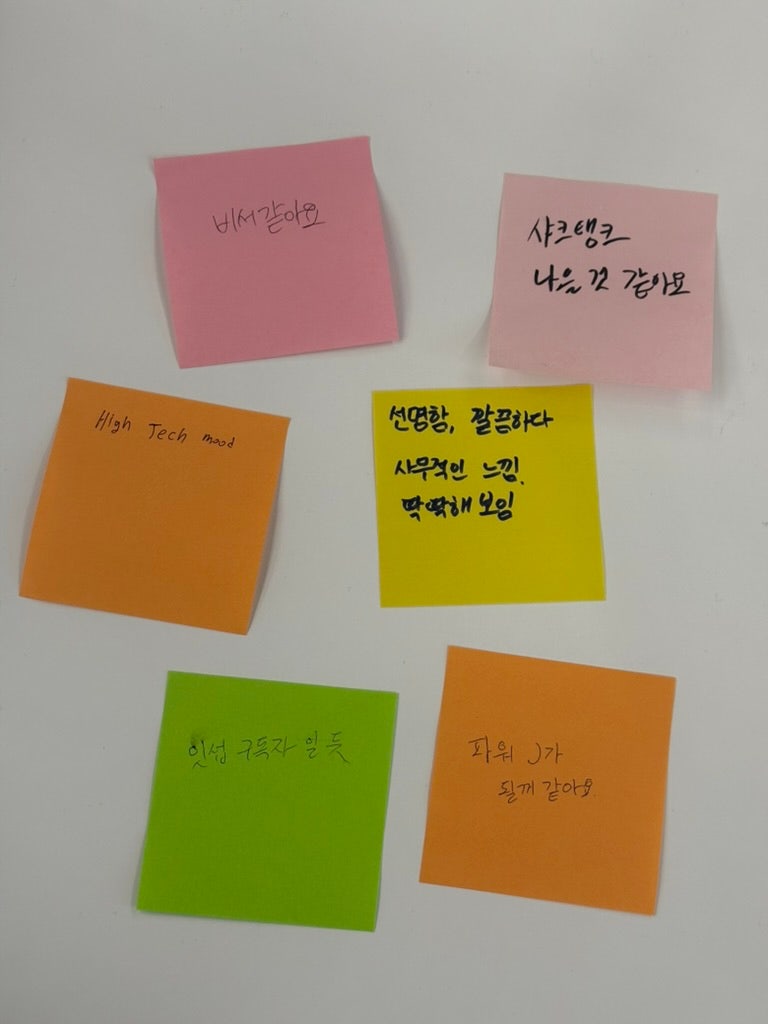 비서같아요
샤크탱크
나올 것 같아요
High Tech mood
선명함, 깔끔하다
사무적인 느낌.
딱딱해 보임
잇섭 구독자 일 듯
파워 J가
될꺼 같아요.